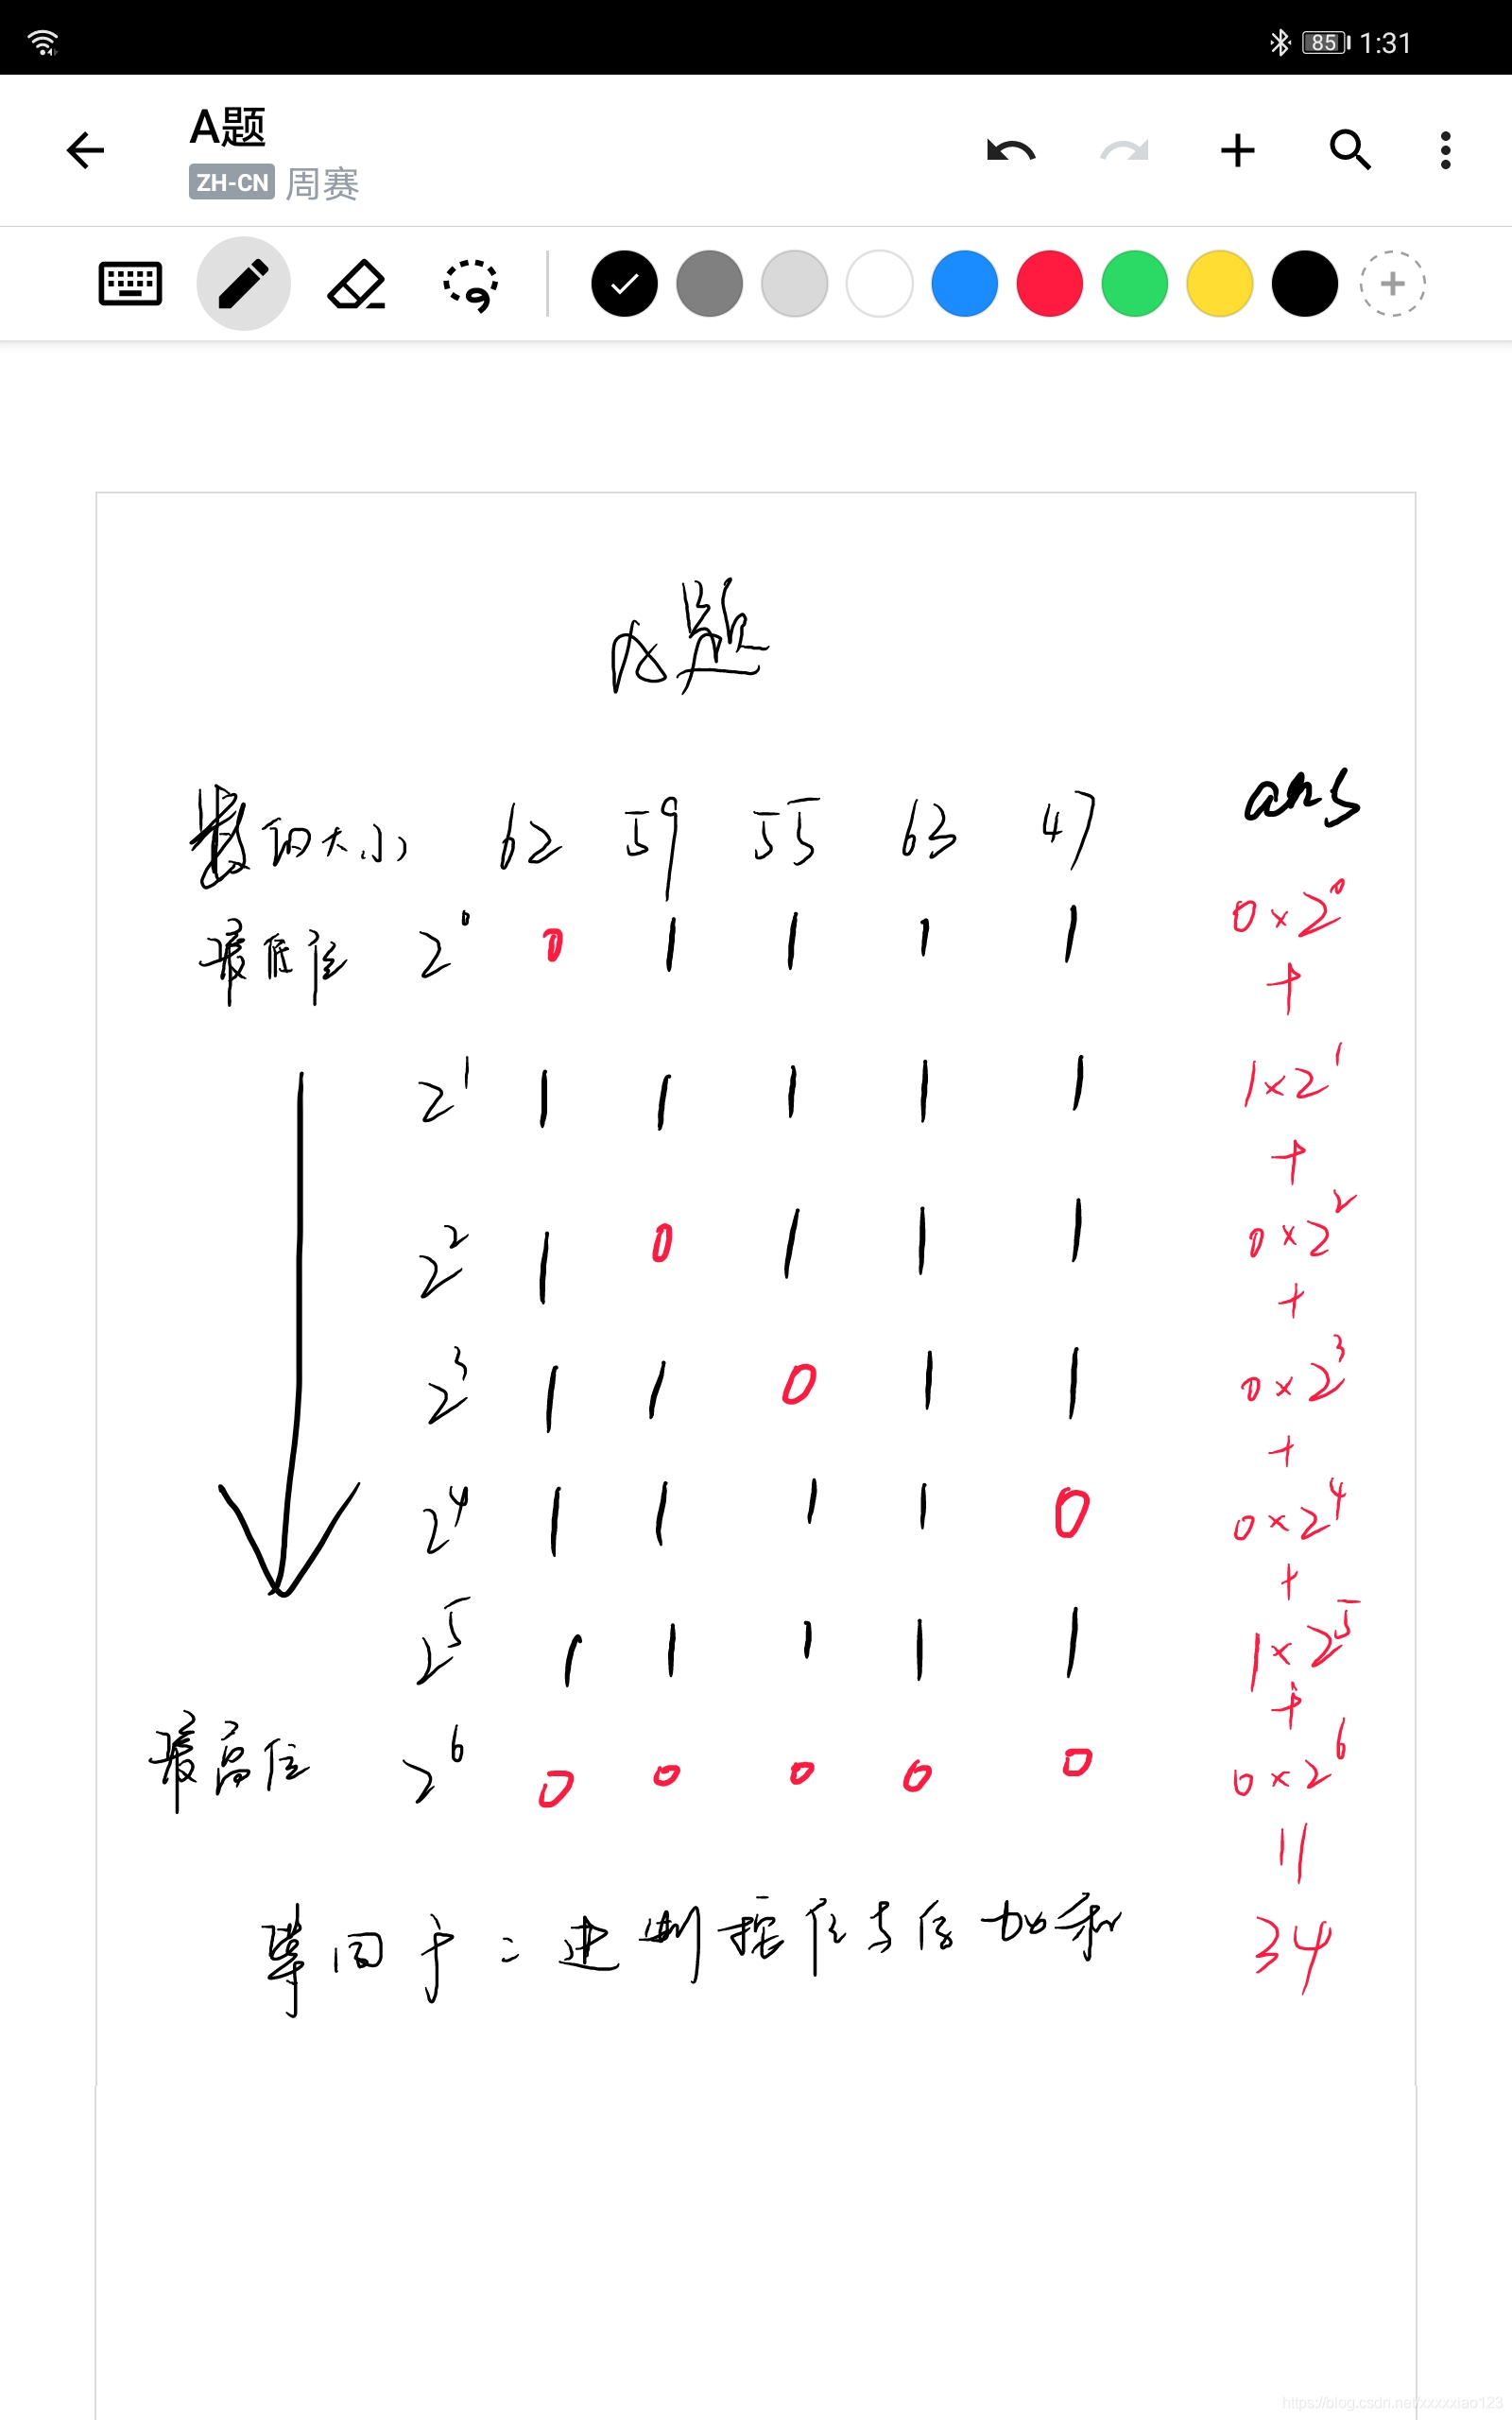 85 1:31
A题
ZH-CN 周赛
A题
数的大小 62 59 55 63 47 ans
最低位 2^0 0 1 1 1 1 0×2^0
+
2^1 1 1 1 1 1 1×2^1
+
2^2 1 0 1 1 1 0×2^2
+
2^3 1 1 0 1 1 0×2^3
+
2^4 1 1 1 1 0 0×2^4
+
2^5 1 1 1 1 1 1×2^5
+
最高位 2^6 0 0 0 0 0 0×2^6
=
等同于二进制按位与后加和 34
https://blog.csdn.net/xxxxxiao123